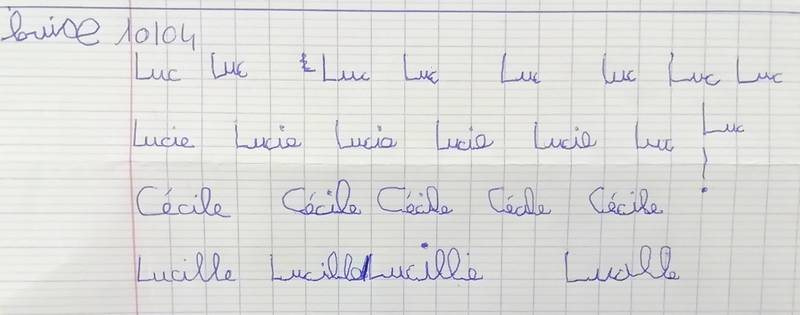 Louise 10/04
Luc Luc Luc Luc Luc Luc Luc Luc
Lucie Lucie Lucie Lucie Lucie Luc Luc
Cécile Cécile Cécile Cécile Cécile
Lucille Lucille Lucille Lucille